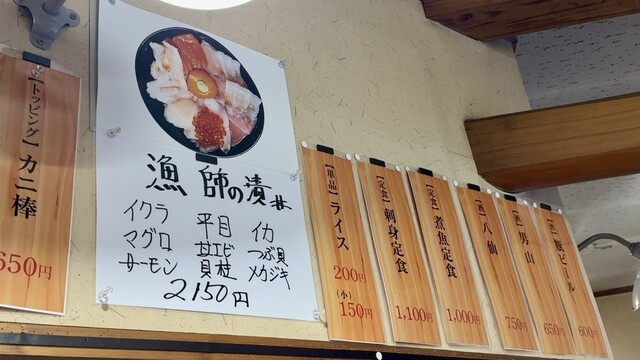 【トッピング】カニ棒
650円
漁師の漬丼
イクラ 平目 イカ
マグロ 甘エビ つぶ貝
サーモン 貝柱 メカジキ
2150円
【単品】ライス
200円
(小)
150円
【定食】刺身定食
1,100円
【定食】煮魚定食
1,000円
【酒】八仙
750円
【酒】男山
650円
【酒】瓶ビール
600円